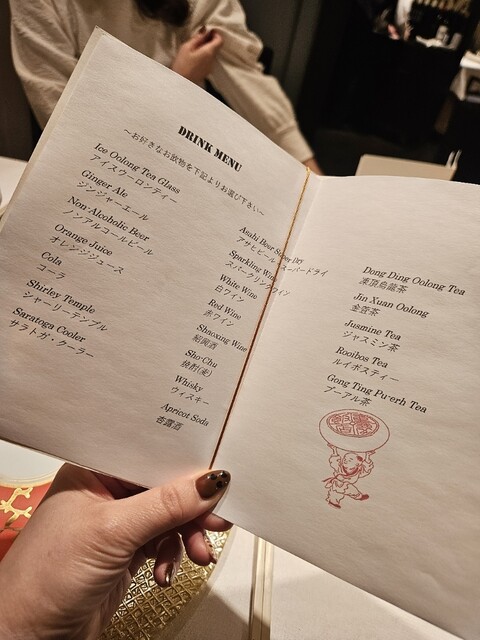 DRINK MENU
～お好きなお飲物を下記よりお選び下さい～
Ice Oolong Tea Glass
アイスウーロンティー
Ginger Ale
ジンジャーエール
Non-Alcoholic Beer
ノンアルコールビール
Orange Juice
オレンジジュース
Cola
コーラ
Shirley Temple
シャーリーテンプル
Saratoga Cooler
サラトガ・クーラー
Asahi Beer Super DRY
アサヒビール スーパードライ
Sparkling Wine
スパークリングワイン
White Wine
白ワイン
Red Wine
赤ワイン
Shaoxing Wine
紹興酒
Sho-Chu
焼酎(麦)
Whisky
ウィスキー
Apricot Soda
杏露酒
Dong Ding Oolong Tea
凍頂烏龍茶
Jin Xuan Oolong
金萱茶
Jusmine Tea
ジャスミン茶
Rooibos Tea
ルイボスティー
Gong Ting Pu-erh Tea
プーアル茶